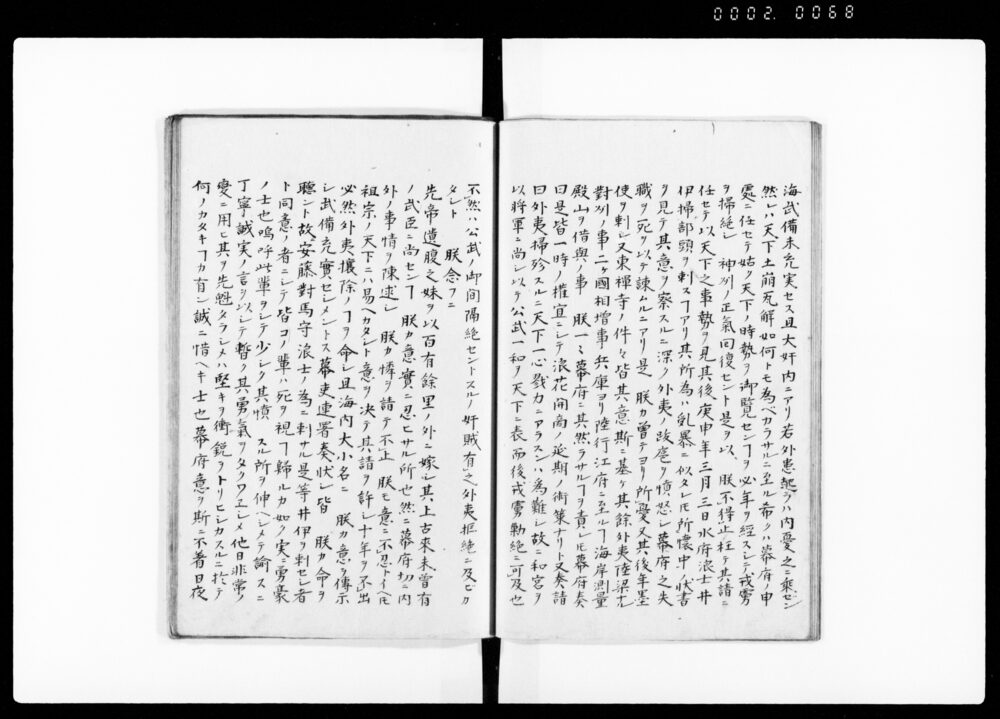 0002.0068
海武備未充実セス且大奸内ニアリ若外患起ラハ内憂之ニ乗セン
然レハ天下土崩瓦解如何トモ為ヘカラサルニ至ル希クハ幕府ノ申
處ニ任セテ姑ク天下ノ時勢ヲ御覧センヿヲ必年ヲ経スシテ戎虜
ヲ掃絶シ 神州ノ正氣回復セント是ヲ以 朕不得止枉テ其請ニ
任セテ以天下之事勢ヲ見其後庚申年三月三日水府浪士井
伊掃部頭ヲ刺スヿアリ其所為ハ乱暴ニ似タレ𪜈所懐中ノ状書
ヲ見テ其意ヲ察スルニ深ク外夷ノ跋扈ヲ憤怒シ幕府之失
職ヲ死ヲ以テ諫ムルニアリ是 朕カ曽テヨリ所憂又其後年墨
使ヲ刺シ又東禅寺ノ件々皆其意斯ニ基ケ其餘外夷陸梁尤
對州ノ事二ヶ國相増事兵庫ヨリ陸行江府ニ至ルヿ海岸測量
殿山ノ借與ノ事 朕一々幕府ニ其然ラサルヿヲ責レ𪜈幕府奏
曰是皆一時ノ権宜ニシテ浪花開商ノ延期ノ術策ナリト又奏請
曰外夷掃殄スルニ天下一心戮力ニアラスンハ為難シ故ニ和宮ヲ
以将軍ニ尚シ以テ公武一和ヲ天下ニ表而後戎虜勦絶ニ可及也
不然ハ公武ノ御間隔絶セントスルノ奸賊有之外夷拒絶ニ及ヒカ
タシト 朕念フニ
先帝遺腹之妹ヲ以百有餘里ノ外ニ嫁シ其上古来未曽有
ノ武臣ニ尚センヿ 朕カ意實ニ忍ヒサル所也然ニ幕府切ニ内
外ノ事情ヲ陳述シ 朕カ憐ヲ請テ不止 朕モ意ニ不忍トイヘ𪜈
祖宗ノ天下ニハ易ヘカタシト意ヲ決テ其請ヲ許シ十年ヲ不出
必然外夷攘除ノヿヲ命シ且海内大小名ニ 朕カ意ヲ傳示
シ武備充實セシメントス幕吏連署奏状シ皆 朕カ命ヲ
聴ント故ニ安藤對馬守浪士ノ為ニ刺サル是等井伊ヲ刺セシ者
ト同意ノ者ニシテ皆コノ輩ハ死ヲ視ヿ歸ルカ如ク実ニ勇豪
ノ士也嗚呼此輩ヲシテ少シク其憤スル所ヲ伸ヘシメテ諭スニ
丁寧誠実ノ言ヲ以シテ暫ク其勇氣ヲタクワエシメ他日非常ノ
變ニ用ヒ其ヲ先魁タラシメハ堅キヲ衝鋭ヲトリヒシカスルニ於テ
何ノカタキヿカ有ン誠ニ惜ヘキ士也幕府意ヲ斯ニ不著日夜